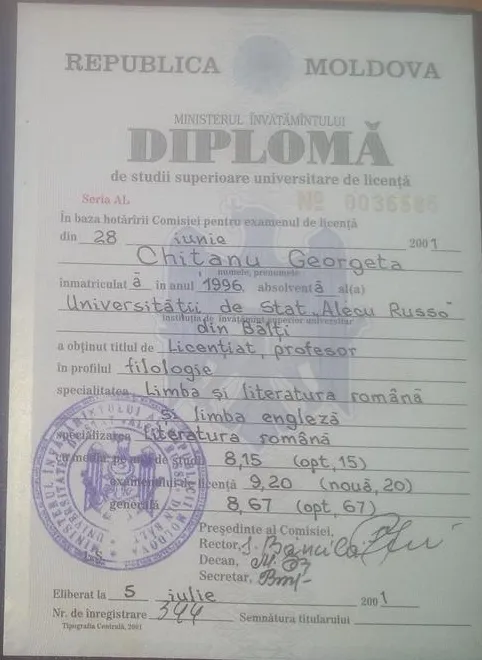 REPUBLICA MOLDOVA
MINISTERUL ÎNVĂȚĂMÎNTULUI
DIPLOMĂ
de studii superioare universitare de licență
Seria AL Nº
În baza hotărîrii Comisiei pentru examenul de licență
din 28 iunie 2001
Chitanu Georgeta
numele, prenumele
înmatriculat ă în anul 1996, absolventă al(a)
Universității de Stat „Alecu Russo”
instituția de învățămînt superior universitar
din Bălți
a obținut titlul de Licențiat, profesor
în profilul filologie
specialitatea Limba și literatura română
și limba engleză
specializarea Literatura română
cu media: pe anii de studii 8,15 (opt, 15)
examenului de licență 9,20 (nouă, 20)
generală 8,67 (opt, 67)
Președinte al Comisiei,
Rector,
Decan,
Secretar,
Eliberat la 5 iulie 2001
Nr. de înregistrare 344 Semnătura titularului
Tipografia Centrală, 2001